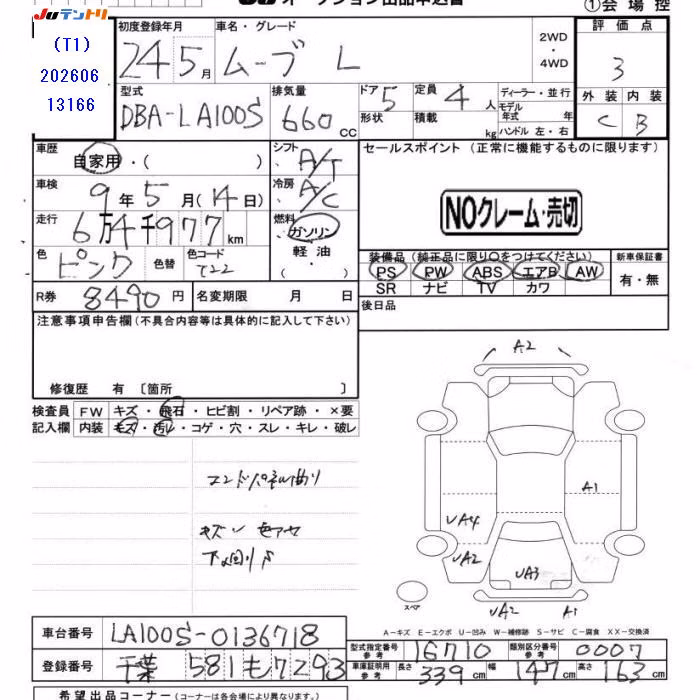 JUテントリ
オークション出品申込書
①会場控
(T1)
202606
13166
初度登録年月
24 5月
車名・グレード
ムーブ L
2WD
・
4WD
評価点
3
型式
DBA-LA100S
排気量
660 CC
ドア 5
形状
定員 4 人
積載 kg
ディーラー・並行
モデル年式 年
ハンドル 左・右
外装 内装
C B
車歴
自家用・( )
シフト A/T
セールスポイント(正常に機能するものに限ります)
車検
9年5月(14日)
冷房 A/C
NOクレーム・売切
走行
6万4千977km
燃料
ガソリン
軽油
・
( )
色 ピンク
色替
色コード T22
装備品(純正品に限り○をつけてください)
PS PW ABS エアB AW
SR ナビ TV カワ
新車保証書
有・無
R券 8490円
名変期限 月 日
後日品
注意事項申告欄(不具合内容等は具体的に記入して下さい)
修復歴 有〔箇所 〕
検査員記入欄
FW キズ・飛石・ヒビ割・リペア跡・×要
内装 キズ・汚れ・コゲ・穴・スレ・キレ・破レ
キズ 色アセ
A2
A1
UA4
UA2
UA3
UA2 A1
スペア
A-キズ E-エクボ U-凹み W-補修跡 S-サビ C-腐食 XX-交換済
車台番号 LA100S-0136718
登録番号 千葉 581 も 7293
型式指定番号参考 16710
類別区分番号 0007
車庫証明用参考 長さ 339cm 幅 147cm 高さ 163cm
希望出品コーナー(コーナーは各会場により異なります。)